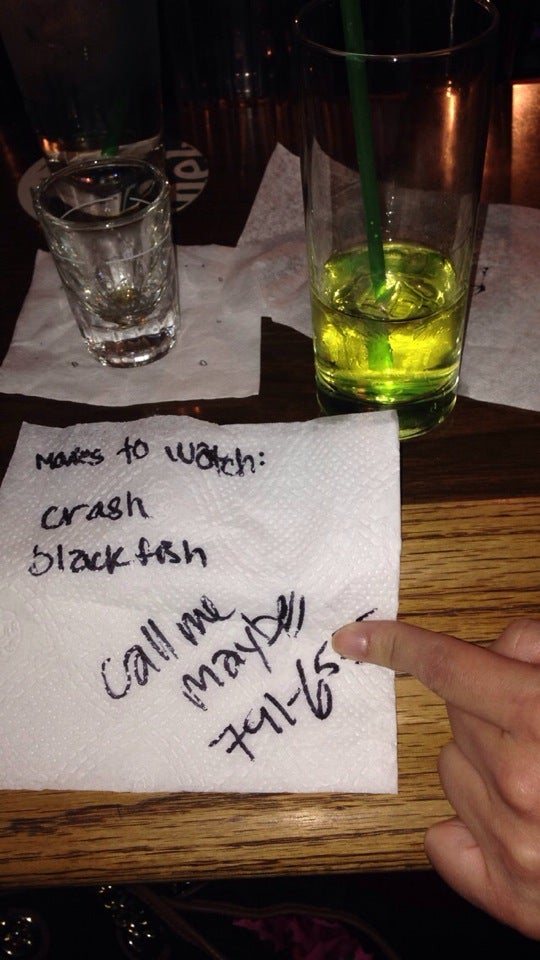 Movies to watch:
crash
blackfish
call me
maybe
741-65